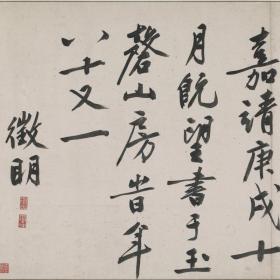 嘉靖庚戌十
月既望書于玉
磬山房昔年
八十又一
徵明